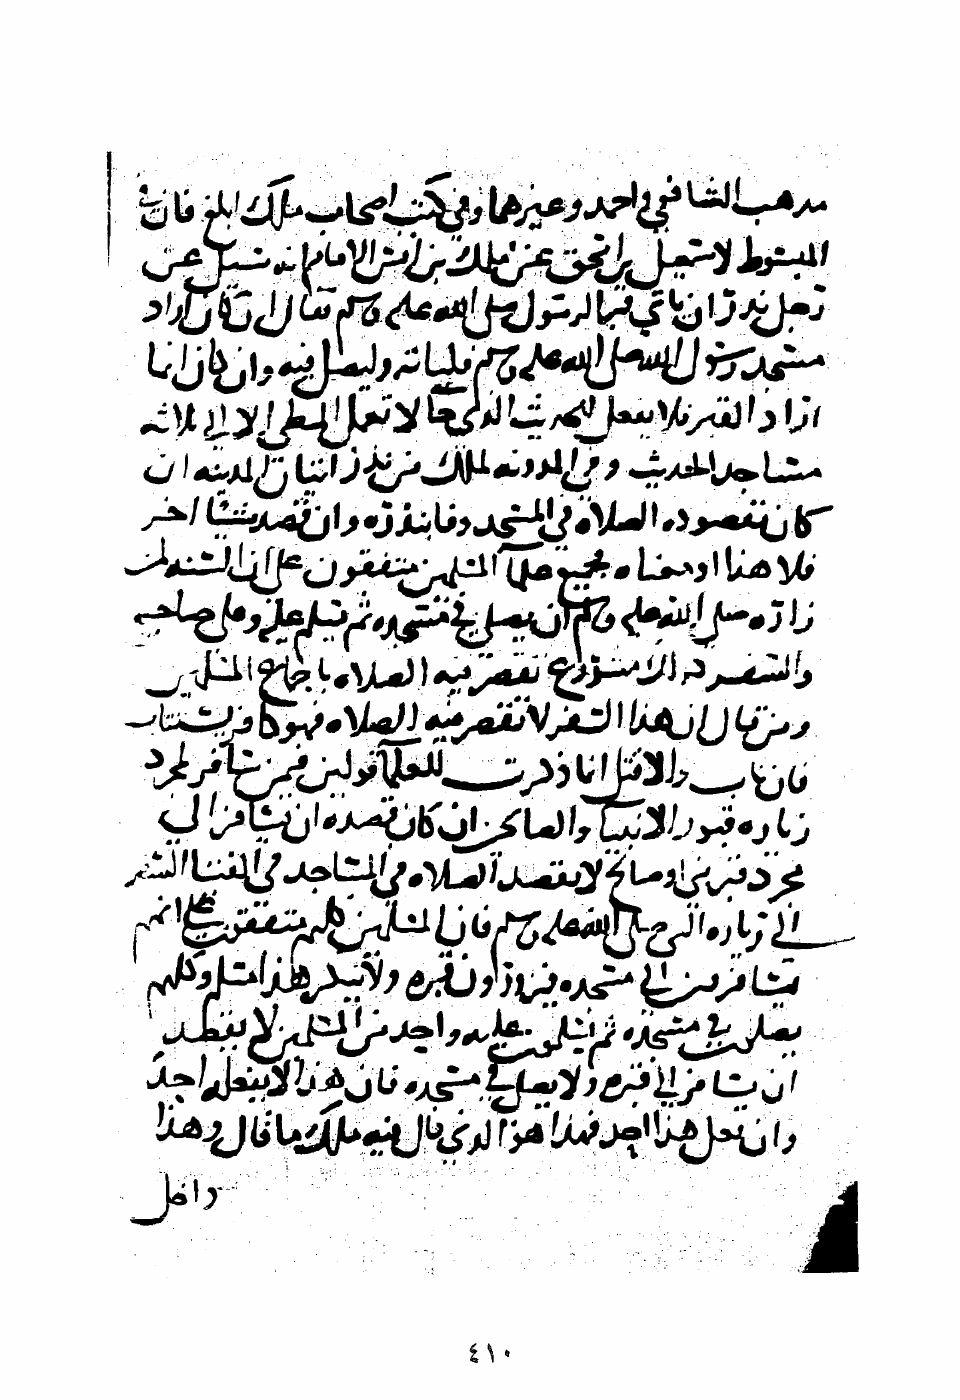 مذهب الشافعي واحمد وغيرهما وفي كتب اصحاب ملك ابلغ فان في
المبسوط لاسمعيل بن اسحق عن ملك بن انس الامام انه سئل عن
رجل نذر ان ياتي قبر الرسول صلى الله عليه وسلم فقال ان كان اراد
مسجد رسول الله صلى الله عليه وسلم فلياته وليصل فيه وان كان انما
اراد القبر فلا يفعل للحديث الذي جا لا تعمل المطي الا الى ثلاثه
مساجد الحديث وفي المدونه لملك من نذر اتيان المدينه ان
كان مقصوده الصلاه في المسجد وفا بنذره وان قصد شيئا اخر
فلا هذا او معناه وجميع علما المسلمين متفقون على ان السنه لمن
زاره صلى الله عليه وسلم ان يصلي في مسجده ثم يسلم عليه وعلى صاحبيه
والسفر المشروع تقصر فيه الصلاه باجماع المسلمين
ومن قال ان هذا السفر لا تقصر فيه الصلاه فهو كافر يستتاب
فان تاب والا قتل انما ذكرت للعلما قولين فيمن سافر لمجرد
زياره قبور الانبيا والصالحين ان كان قصده ان يسافر الى
مجرد قبر نبي او صالح لا يقصد الصلاه في المساجد في الفتيا السفر
الى زياره النبي صلى الله عليه وسلم فان المسلمين كلهم متفقون على انهم
يسافرون الى مسجده فيزورون قبره ولا ينكر هذا مسلم وكلهم
يصلون في مسجده ثم يسلمون عليه واحد من المسلمين لا يقصد
ان يسافر الى قبره ولا يصلي في مسجده فان هذا لا يفعله احد
وان فعل هذا احد فهذا هو الذي قال فيه ملك ما قال وهذا
داخل
٤١٠